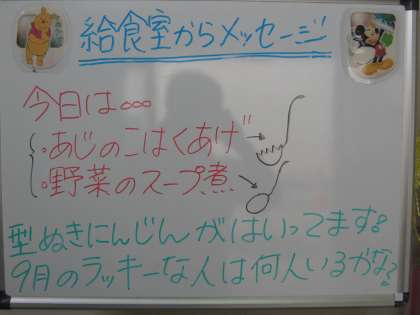 給食室からメッセージ
今日は…
・あじのこはくあげ
・野菜のスープ煮
型ぬきにんじんがはいってます。
9月のラッキーな人は何人いるかな?